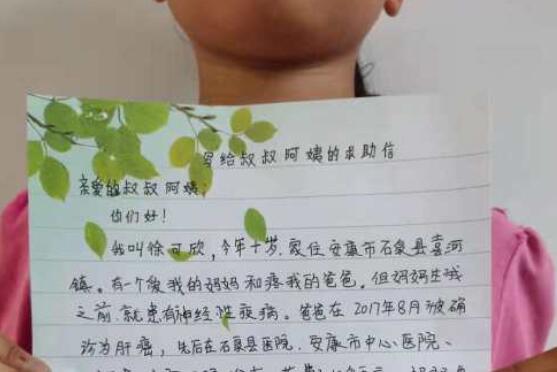 写给叔叔阿姨的求助信
亲爱的叔叔阿姨:
你们好!
我叫徐可欣,今年十岁.家住安康市石泉县喜河
镇。有一个爱我的妈妈和疼我的爸爸。但妈妈生我
之前.就患有神经性疾病。爸爸在2017年8月被确
诊为肝癌,先后在石泉县医院.安康市中心医院、